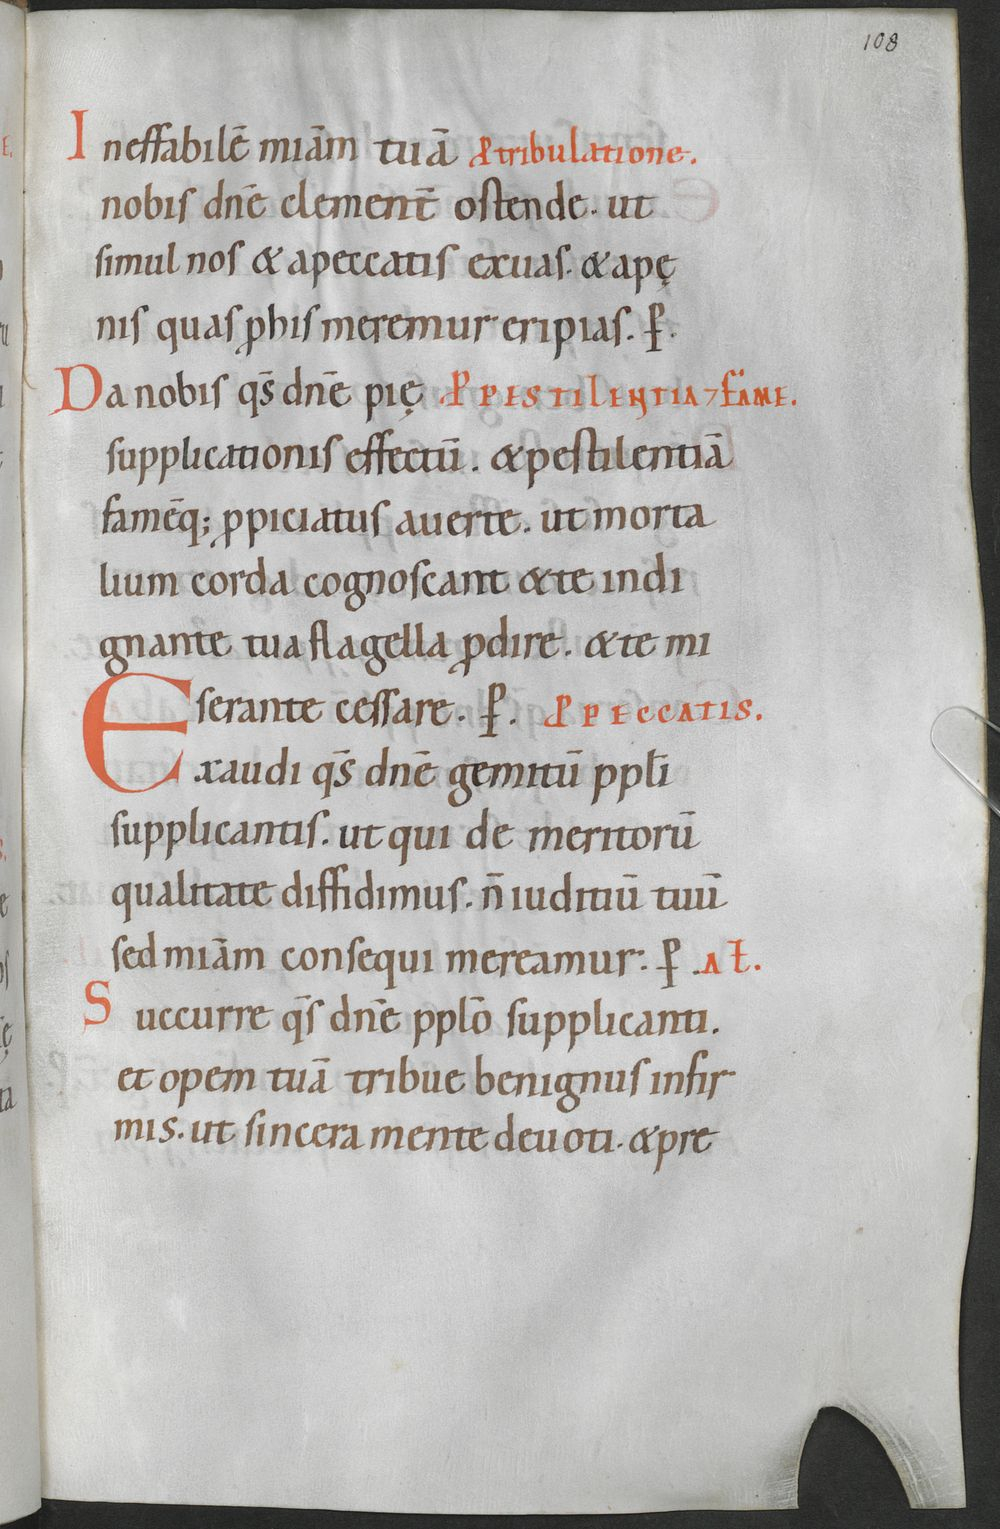 108
Ineffabilē miām tuā ꝓtribulatione.
nobis dn̄e clement̄ ostende. ut
simul nos & apeccatis exuas. & apę
nis quas ꝓhis meremur eripias. ꝑ.
Da nobis qs̄ dn̄e pię ꝓ PESTILENTIA ⁊ FAME.
supplicationis effectū. & pestilentiā
famēq; ꝓpiciatus auerte. ut morta
lium corda cognoscant & te indi
gnante tua flagella ꝓdire. & te mi
serante cessare. ꝑ. ꝓ PECCATIS.
Exaudi qs̄ dn̄e gemitū ppl̄i
supplicantis. ut qui de meritorū
qualitate diffidimus. n̄ iuditiū tuū
sed miām consequi mereamur. ꝑ. Ał.
Succurre qs̄ dn̄e pplō supplicanti.
et opem tuā tribue benignus infir
mis. ut sincera mente deuoti. & pre